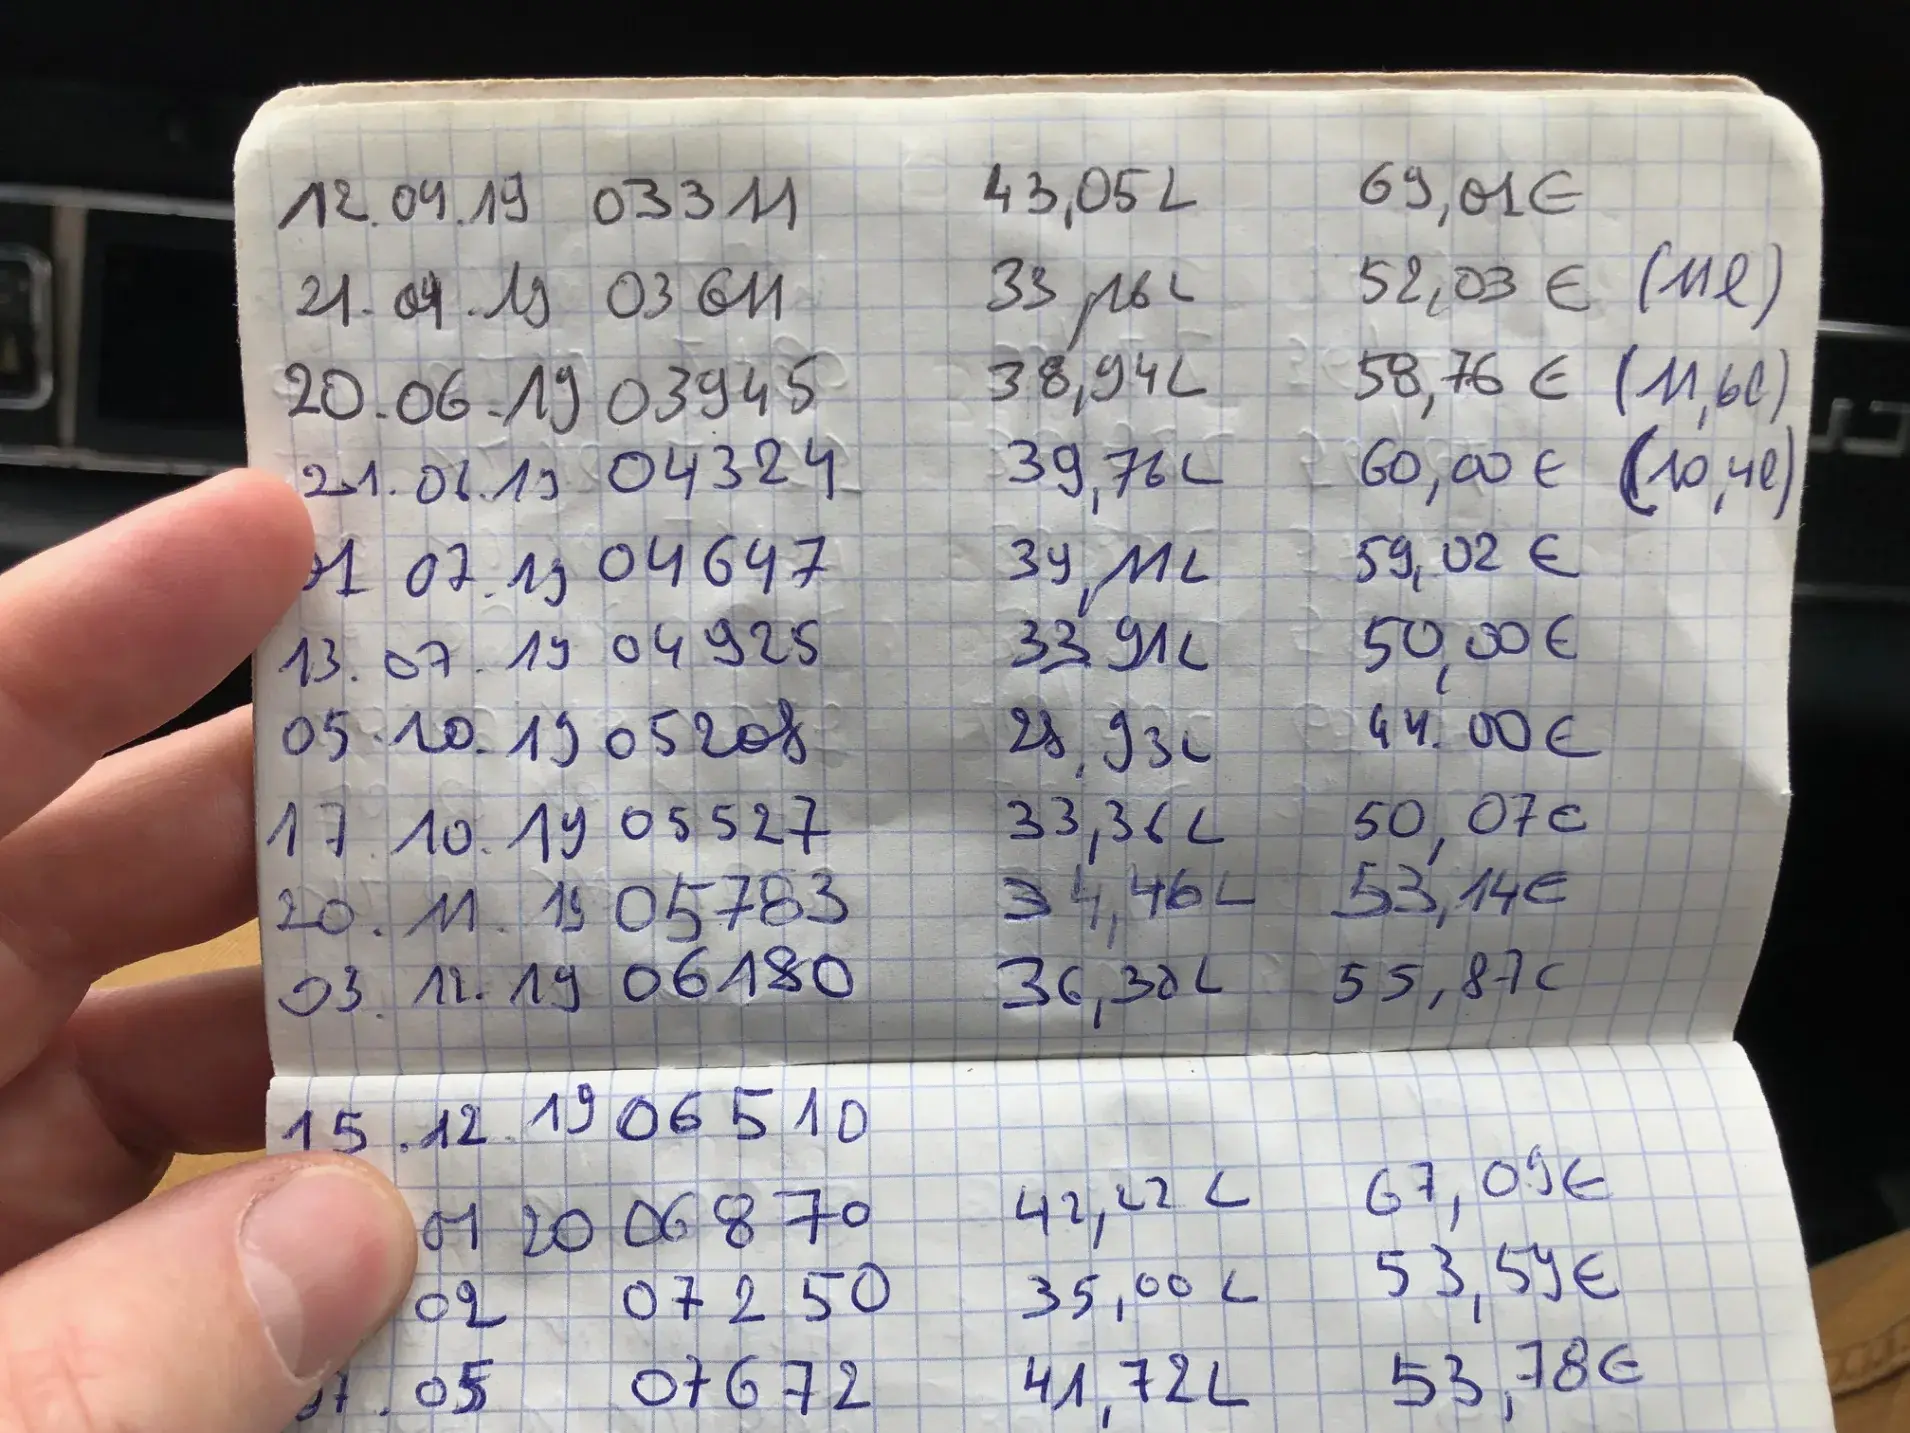 12.04.19 03311 43,05L 69,01€
21.04.19 03611 33,16L 52,03€ (11l)
20.06.19 03945 38,94L 58,76€ (11,6l)
21.06.19 04324 39,76L 60,00€ (10,4l)
01 07.19 04647 39,11L 59,02€
13.07.19 04925 33,91L 50,00€
05.10.19 05208 28,93L 44.00€
17 10.19 05527 33,36L 50,07€
20.11.19 05783 34,46L 53,14€
03.12.19 06180 36,30L 55,87€
15.12.19 06510
01 20 06870 42,22L 67,09€
02 07250 35,00L 53,59€
07.05 07672 41,72L 53,78€